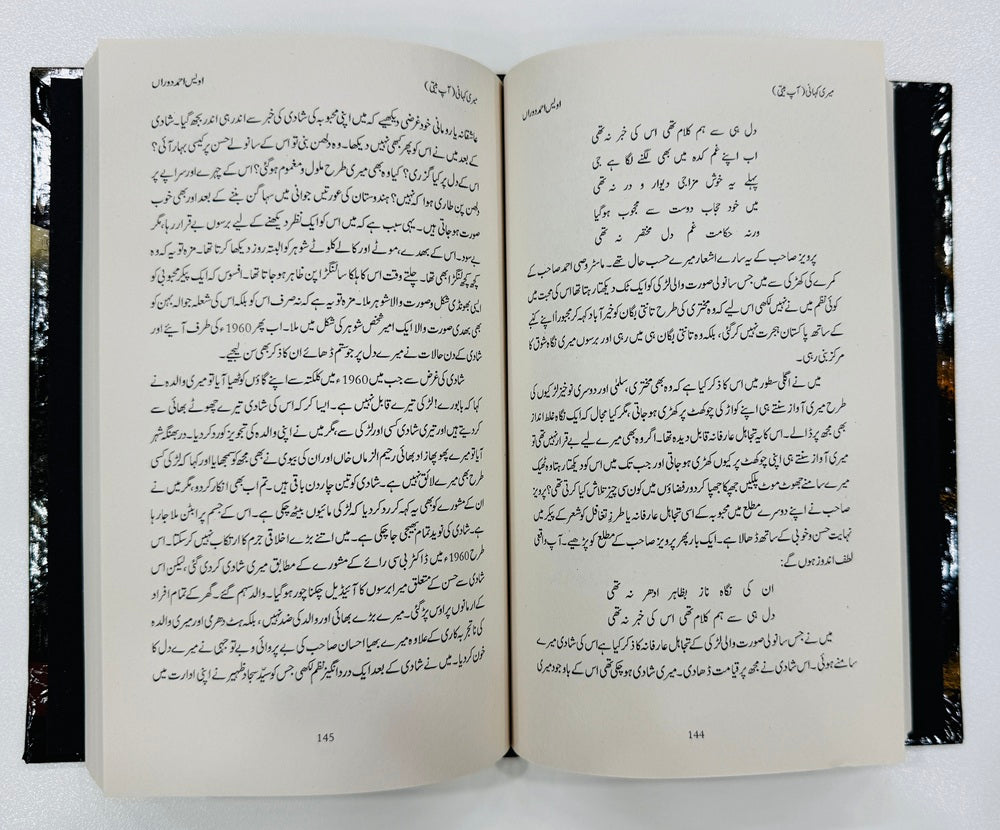 میری کہانی (آپ بیتی)
اویس احمد دوراں
دل ہی سے ہم کلام تھی اس کی خبر نہ تھی
اب اپنے غم کدہ میں بھی لگنے لگا ہے جی
پہلے یہ خوش مزاجیِ دیوار و در نہ تھی
میں خود حجاب دوست سے محجوب ہوگیا
ورنہ حکامت غم دل مختصر نہ تھی
پرویز صاحب کے یہ سارے اشعار میرے حسب حال تھے۔ ماسٹر وصی احمد صاحب کے
کمرے کی کھڑکی سے میں جس سانولی صورت والی لڑکی کو ایک ٹک دیکھتا رہتا تھا اس کی محبت میں
کوئی نظم میں نے نہیں لکھی اس لیے کہ وہ مختری کی طرح تانتی بگان کو خیر آباد کہہ کر مجبوراً اپنے کنبے
کے ساتھ پاکستان ہجرت نہیں کرگئی، بلکہ وہ تانتی بگان ہی میں رہی اور برسوں میری نگاہ شوق کا
مرکز بنی رہی۔
میں نے اگلی سطور میں اس کا ذکر کیا ہے کہ وہ بھی مختری، سلمٰی اور دوسری نوخیز لڑکیوں کی
طرح میری آواز سنتے ہی اپنے کواڑ کی چوکھٹ پر کھڑی ہوجاتی، مگر کیا مجال کہ ایک نگاہ غلط انداز
بھی مجھ پر ڈالے۔ اس کا یہ تجاہل عارفانہ قابل دیدہ تھا۔ اگر وہ بھی میرے لیے بے قرار نہیں تھی تو
میری آواز سنتے ہی اپنی چوکھٹ پر کیوں کھڑی ہوجاتی اور جب تک میں اس کو دیکھتا رہتا وہ ٹھیک
میرے سامنے جھوٹ موٹ پلکیں جھپکا جھپا کر دور فضاؤں میں کون سی چیز تلاش کیا کرتی تھی؟ پرویز
صاحب نے اپنے دوسرے مطلع میں محبوبہ کے اسی تجاہل عارفانہ یا طرزِ تغافل کو شعر کے پیکر میں
نہایت حسن و خوبی کے ساتھ ڈھالا ہے۔ ایک بار پھر پرویز صاحب کے مطلع کو پڑھیے۔ آپ واقعی
لطف اندوز ہوں گے:
ان کی نگاہ ناز بظاہر ادھر نہ تھی
دل ہی سے ہم کلام تھی اس کی خبر نہ تھی
میں نے جس سانولی صورت والی لڑکی کے تجاہل عارفانہ کا ذکر کیا ہے اس کی شادی میرے
سامنے ہوئی۔ اس شادی نے مجھ پر قیامت ڈھادی۔ میری شادی ہوچکی تھی اس کے باوجود میری
144
اویس احمد دوراں
میری کہانی (آپ بیتی)
عاشقانہ یا رومانی خود غرضی دیکھیے کہ میں اپنی محبوبہ کی شادی کی خبر سے اندر ہی اندر بجھ گیا۔ شادی
کے بعد میں نے اس کو پھر کبھی نہیں دیکھا۔ وہ دلھن بنی تو اس کے سانولے حسن پر کیسی بہار آئی؟
اس کے دل پر کیا گزری؟ کیا وہ بھی میری طرح ملول و مغموم ہوگئی؟ اس کے چہرے اور سراپے پر
دلھن پن طاری ہوا کہ نہیں؟ ہندوستان کی عورتیں جوانی میں سہاگن بننے کے بعد اور بھی خوب
صورت ہوجاتی ہیں۔ یہی سبب ہے کہ میں اس کو ایک نظر دیکھنے کے لیے برسوں بے قرار رہا، مگر
بے سود۔ اس کے بھدے، موٹے اور کالے کلوٹے شوہر کو البتہ روز دیکھا کرتا تھا۔ مزہ تو یہ کہ وہ
کچھ کچھ لنگڑا بھی تھا۔ چلتے وقت اس کا ہلکا سا لنگڑا پن ظاہر ہوجاتا تھا۔ افسوس کہ ایک پیکر محبوبی کو
ایسی بھونڈی شکل و صورت والا شوہر ملا۔ مزہ تو یہ ہے کہ نہ صرف اس کو بلکہ اس کی شعلہ جوالہ بہن کو
بھی بھدی صورت والا ایک امیر شخص شوہر کی شکل میں ملا۔ اب پھر 1960ء کی طرف آیئے اور
شادی کے دن حالات نے میرے دل پر جو ستم ڈھائے ان کا ذکر بھی سن لیجیے۔
شادی کی غرض سے جب میں 1960ء میں کلکتہ سے اپنے گاؤں کوٹھیا آیا تو میری والدہ نے
کہا کہ بابو رے! لڑکی تیرے قابل نہیں ہے۔ ایسا کر کہ اس کی شادی تیرے چھوٹے بھائی سے
کردیتے ہیں اور تیری شادی کسی اور لڑکی سے، مگر میں نے اپنی والدہ کی تجویز کو رد کردیا۔ دربھنگہ شہر
آیا تو میرے پھوپھا زاد بھائی رحیم الزماں خاں اور ان کی بیوی نے بھی مجھ کو سمجھایا اور کہا کہ لڑکی کسی
طرح بھی میرے لائق نہیں ہے۔ شادی کو تین چار دن باقی ہیں۔ تم اب بھی انکار کردو، مگر میں نے
ان کے مشورے کو بھی یہ کہہ کر رد کردیا کہ لڑکی مائیوں بیٹھ چکی ہے۔ اس کے جسم پر ابٹن ملا جارہا
ہے۔ شادی کی نوید تمام بھیجی جا چکی ہے۔ میں اتنے بڑے اخلاقی جرم کا ارتکاب نہیں کرسکتا۔ اس
طرح 1960ء میں ڈاکٹر بی سی رائے کے مشورے کے مطابق میری شادی کردی گئی، لیکن اس
شادی سے حسن کے متعلق میرا برسوں کا آئیڈیل چکنا چور ہوگیا۔ والد سہم گئے۔ گھر کے تمام افراد
کے ارمانوں پر اوس پڑگئی۔ میرے بڑے بھائی اور والد کی ضد نہیں، بلکہ ہٹ دھرمی اور میری والدہ
کی ناتجربہ کاری کے علاوہ میرے بھیا احسان صاحب کی بے پروائی و بے توجہی نے میرے دل کا
خون کردیا۔ میں نے شادی کے بعد ایک درد انگیز نظم لکھی جس کو سید سجاد ظہیر نے اپنی ادارت میں
145